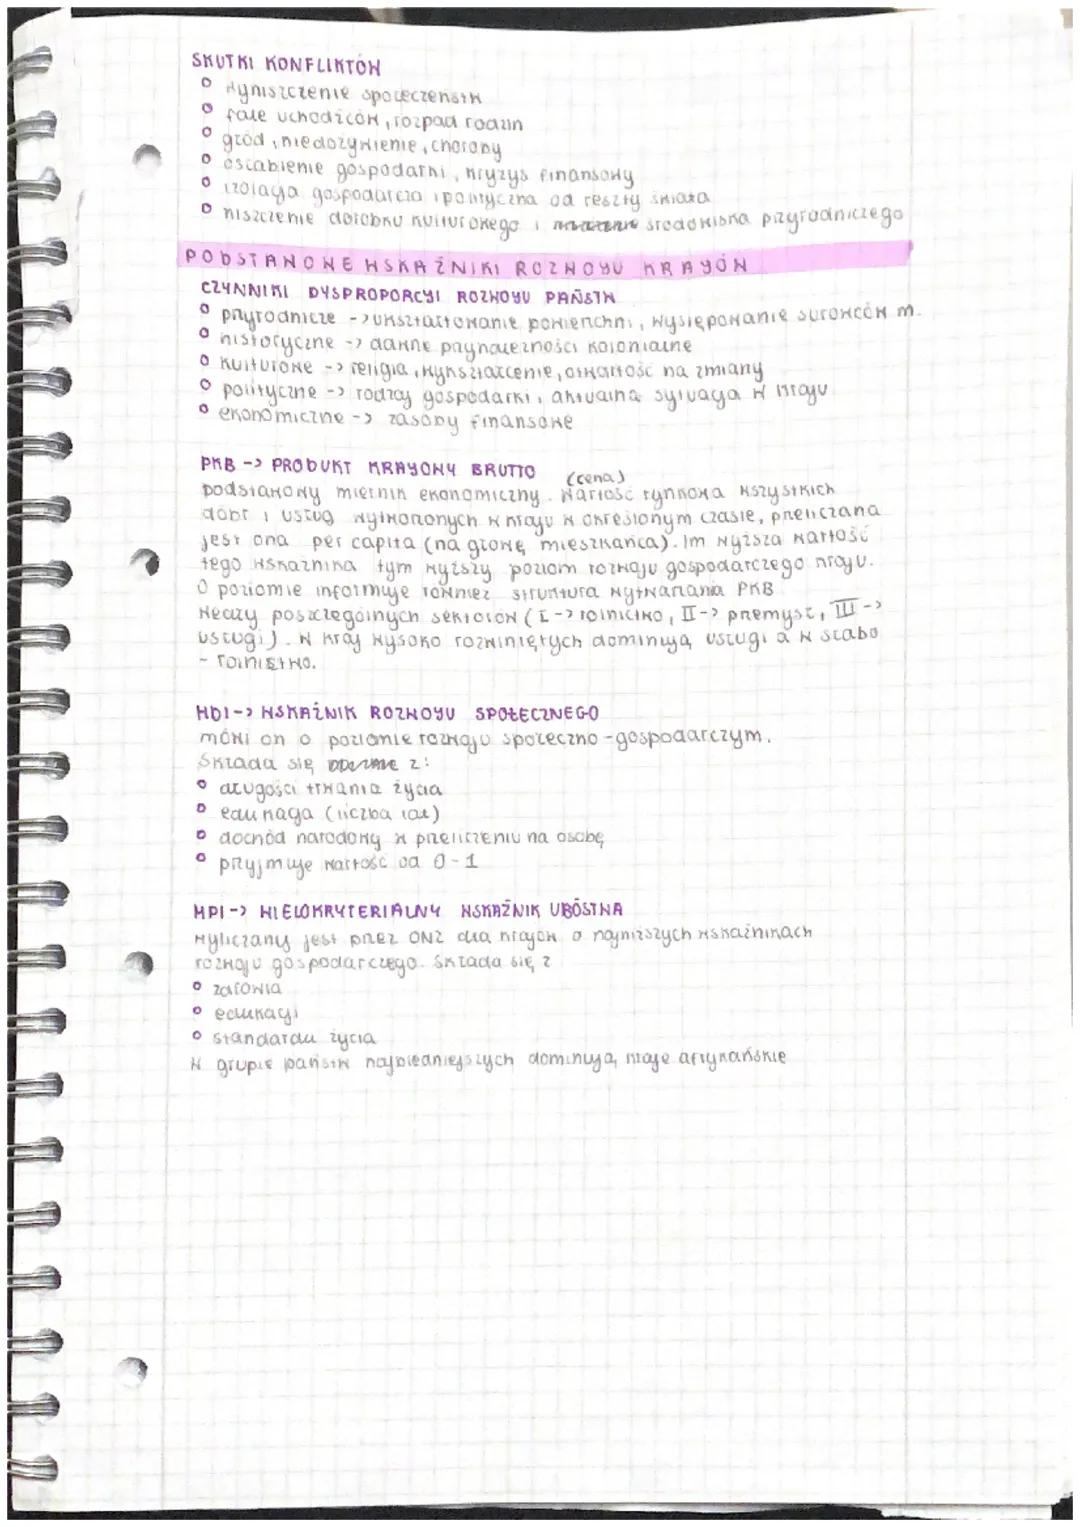 SKUTKI KONFLIKTÓW
wyniszczenie społeczeństw
fale uchodźców, rozpad rodzin
głód, niedożywienie, choroby
osłabienie gospodarki, kryzys finansowy
izolacja gospodarcza i polityczna od reszty świata
niszczenie dorobku kulturowego i środowiska przyrodniczego
PODSTAWOWE WSKAŹNIKI ROZWOJU KRAJÓW
CZYNNIKI DYSPROPORCJI ROZWOJU PAŃSTW
przyrodnicze -> ukształtowanie powierzchni, występowanie surowców m.
historyczne -> dawne przynależności kolonialne
kulturowe -> religia, wykształcenie, otwartość na zmiany
polityczne -> rodzaj gospodarki, aktualna sytuacja w kraju
ekonomiczne -> zasoby finansowe
PKB -> PRODUKT KRAJOWY BRUTTO (cena)
podstawowy miernik ekonomiczny. Wartość rynkowa wszystkich
dóbr i usług wytworzonych w kraju w określonym czasie, przeliczana
jest ona per capita (na głowę mieszkańca). Im wyższa wartość
tego wskaźnika tym wyższy poziom rozwoju gospodarczego kraju.
O poziomie informuje również struktura wytwarzania PKB
według poszczególnych sektorów (I -> rolnictwo, II -> przemysł, III ->
usługi). W kraj wysoko rozwiniętych dominują usługi a w słabo
- rolnictwo.
HDI -> WSKAŹNIK ROZWOJU SPOŁECZNEGO
mówi on o poziomie rozwoju społeczno-gospodarczym.
Składa się z:
długości trwania życia
edukacja (liczba lat)
dochód narodowy w przeliczeniu na osobę
przyjmuje wartość od 0-1
MPI -> WIELOKRYTERIALNY WSKAŹNIK UBÓSTWA
Wyliczany jest przez ONZ dla krajów o najniższych wskaźnikach
rozwoju gospodarczego. Składa się z
zdrowia
edukacji
standardu życia
W grupie państw najbiedniejszych dominują kraje afrykańskie